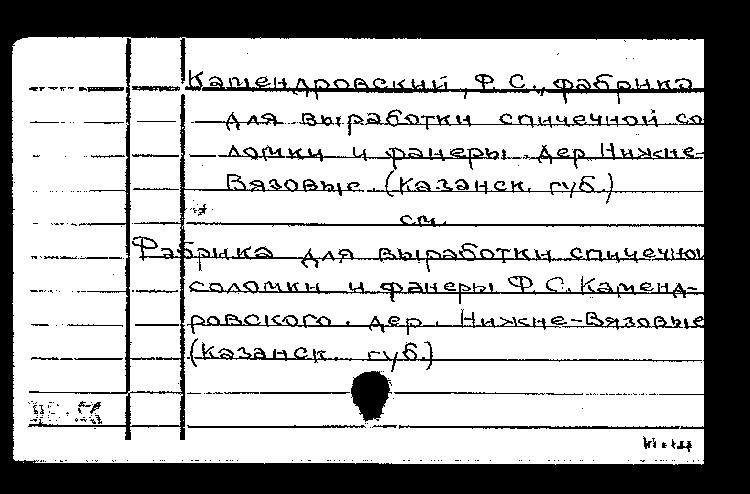 Камендровский, Ф. С., фабрика
для выработки спичечной со
ломки и фанеры. дер Нижне-
Вязовые. (Казанск. губ.)
см.
Фабрика для выработки спичечной
соломки и фанеры Ф. С. Каменд-
ровского. дер. Нижне-Вязовые
(Казанск. губ.)